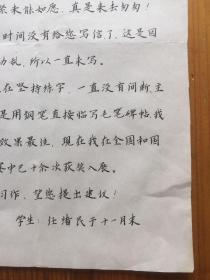 未能如愿,真是来去匆匆!
时间没有给您写信了,这是因
,所以一直未写。
在坚持练字,一直没有间断,主
是用钢笔直接临写毛笔碑帖,我
效果最佳,现在我在全国和国
中已十余次获奖入展。
习作,望您提出建议!
学生:
于十一月末